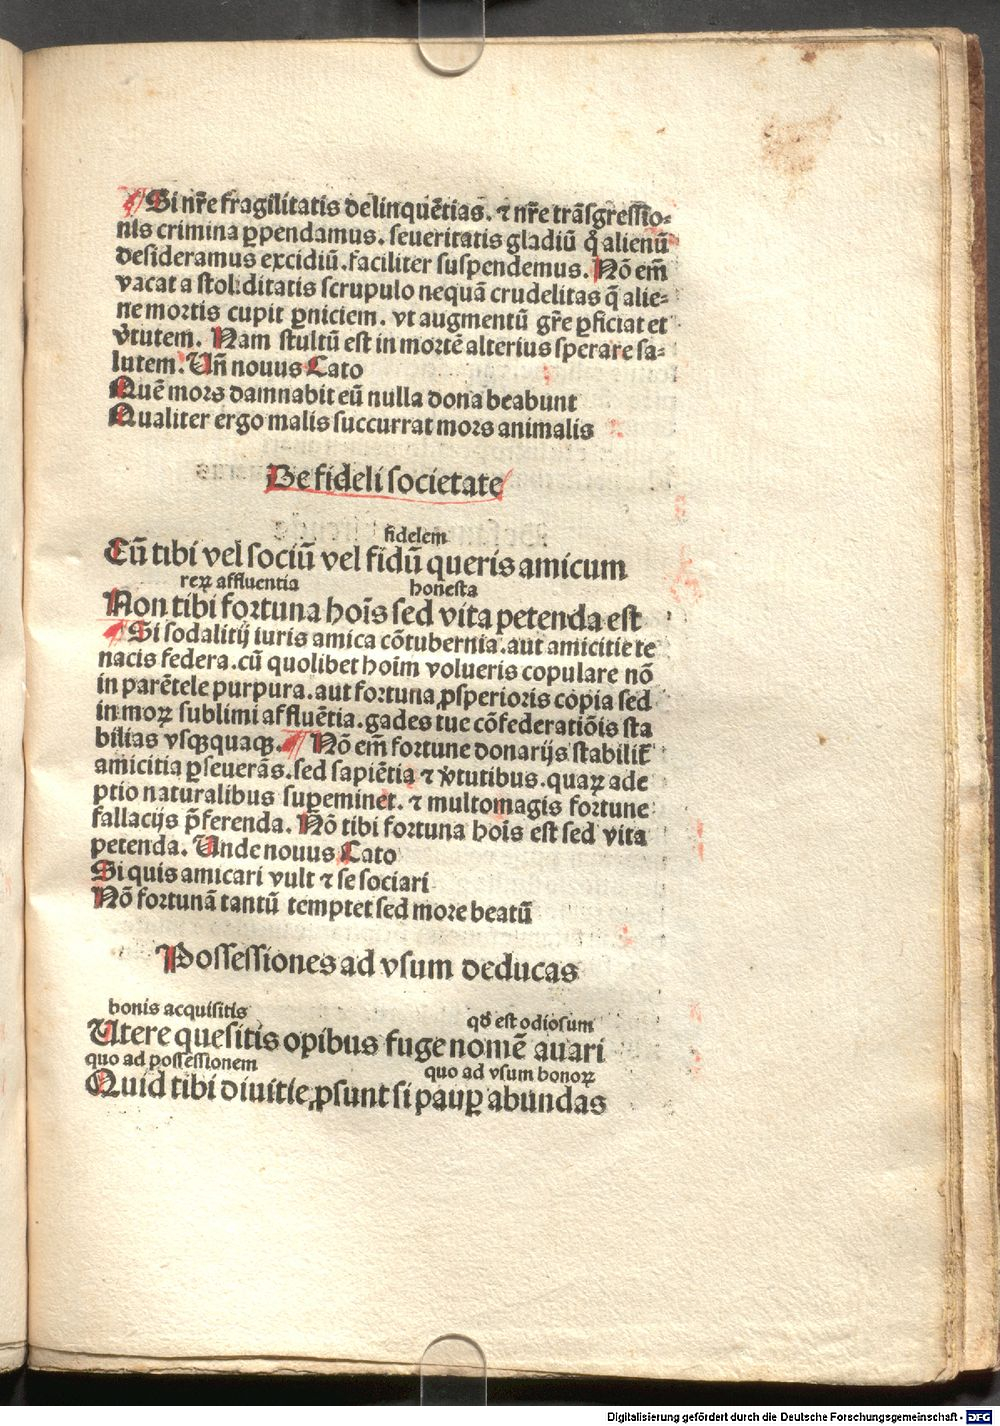 Si nr̄e fragilitatis delinquētias. ⁊ nr̄e trāsgressio-
nis crimina ꝑpendamus. seueritatis gladiū q̇ alienū
desideramus excidiū. faciliter suspendemus. Nō em̄
vacat a stoliditatis scrupulo nequā crudelitas q̄ alie-
ne mortis cupit ꝑniciem. vt augmentū gr̄e ꝑficiat et
v̓tutem. Nam stultū est in mortē alterius sperare sa-
lutem. Uñ nouus Cato
Quē mors damnabit eū nulla dona beabunt
Qualiter ergo malis succurrat mors animalis
De fideli societate
fidelem
Cū tibi vel sociū vel fidū queris amicum
reꝝ affluentia honesta
Non tibi fortuna hoīs sed vita petenda est
Si sodalitij iuris amica cōtubernia. aut amicitie te
nacis federa. cū quolibet hoīm volueris copulare nō
in parētele purpura. aut fortuna ꝓsperioris copia sed
in moꝝ sublimi affluētia. gades tue cōfederatiōis sta
bilias vsqꝫquaqꝫ. Nō em̄ fortune donarijs stabilit̄
amicitia ꝑseuerās. sed sapiētia ⁊ v̓tutibus. quaꝝ ade
ptio naturalibus suꝑeminet. ⁊ multomagis fortune
fallacijs p̄ferenda. Nō tibi fortuna hoīs est sed vita
petenda. Unde nouus Cato
Si quis amicari vult ⁊ se sociari
Nō fortunā tantū temptet sed more beatū
Possessiones ad vsum deducas
bonis acquisitis qd̓ est odiosum
Utere quesitis opibus fuge nomē auari
quo ad possessionem quo ad vsum bonoꝝ
Quid tibi diuitie ꝓsunt si pauꝑ abundas
Digitalisierung gefördert durch die Deutsche Forschungsgemeinschaft - DFG